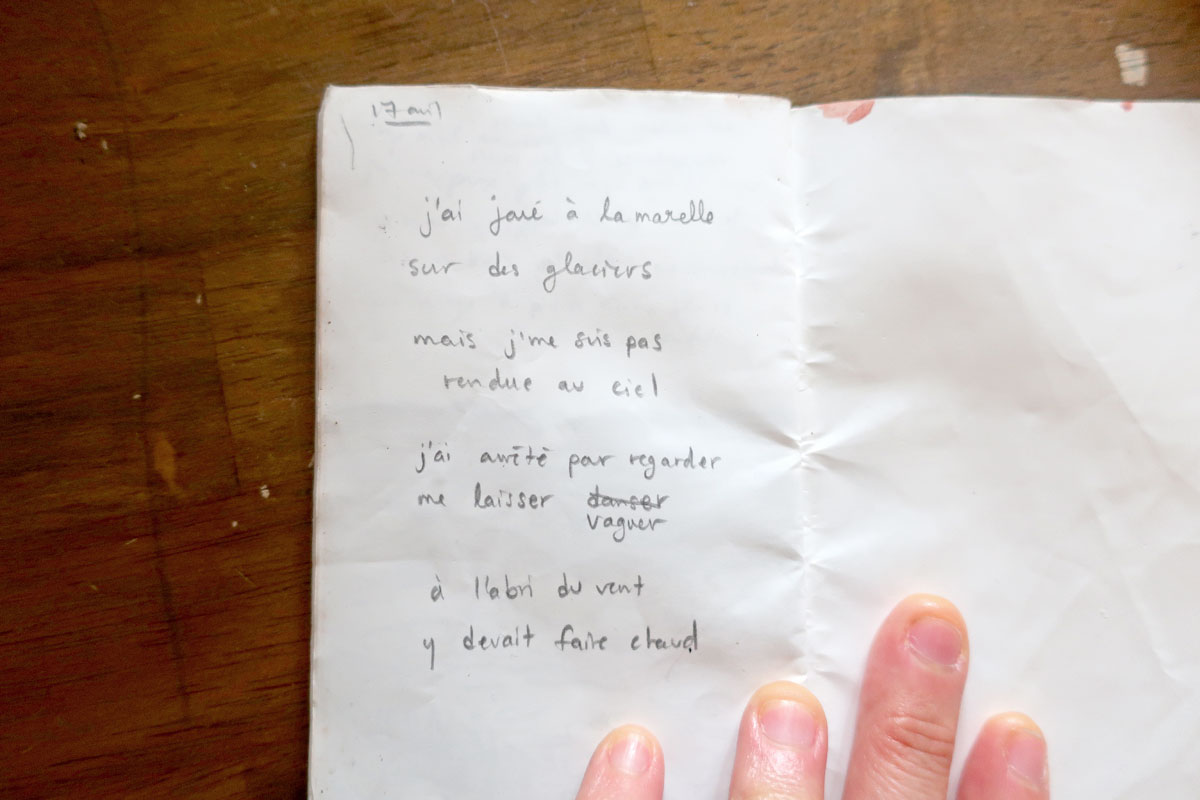 17 avril
j'ai joué à la marelle
sur des glaciers
mais j'me suis pas
rendue au ciel
j'ai arrêté par regarder
me laisser danser
vaguer
à l'abri du vent
y devait faire chaud